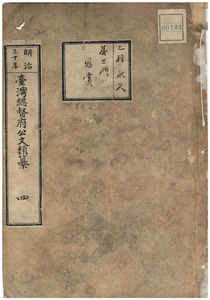 明治
三十年
臺灣總督府公文類纂
四
乙種永久
第三門
恩賞
00143